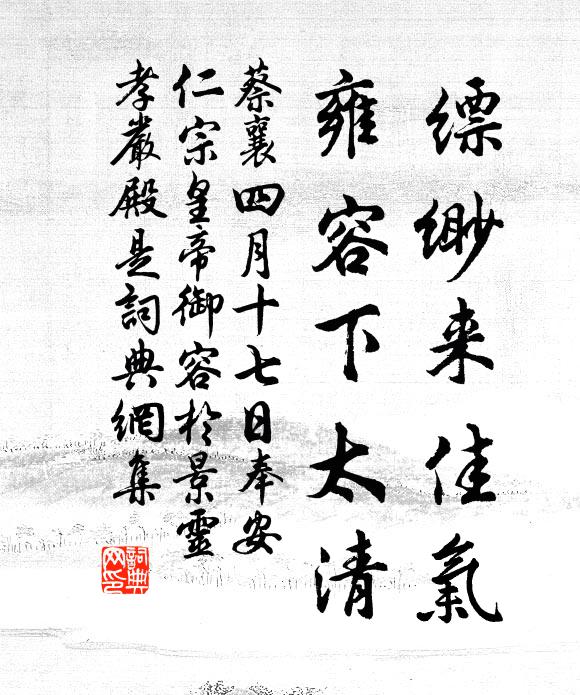 缥缈来佳氣
雍容下太清
蔡襄四月十七日奉安
仁宗皇帝御容於景靈
孝嚴殿是詞典網集
詞典网印